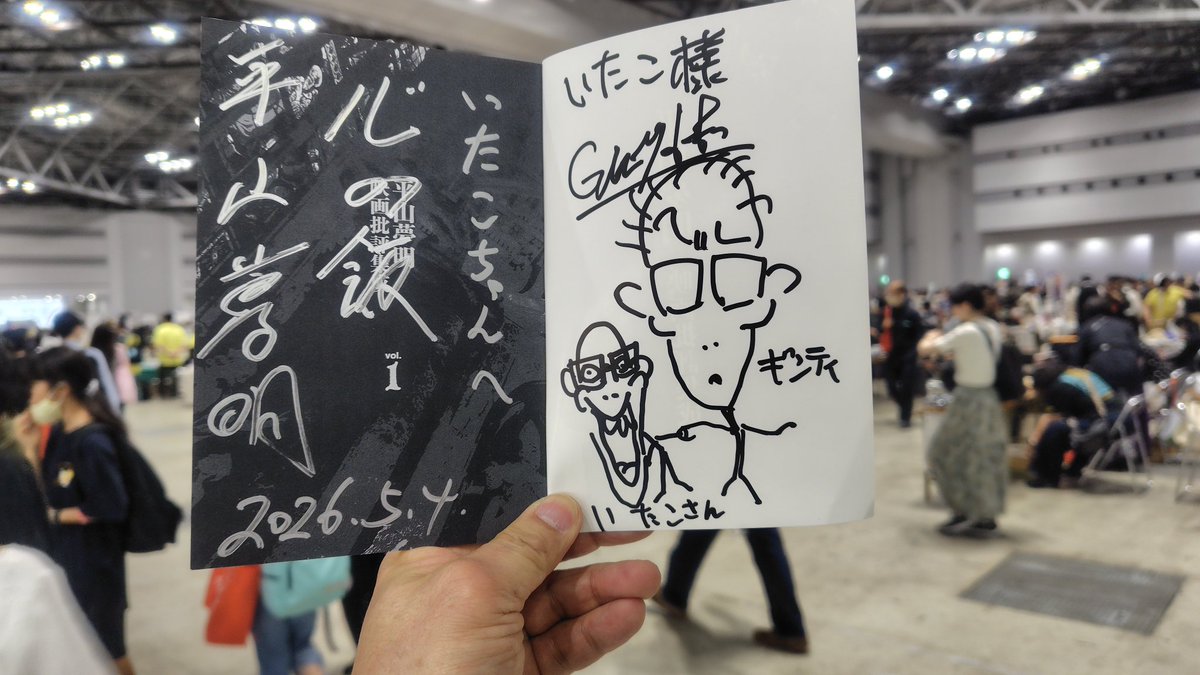 いたこちゃんへ
心の飯
平山夢明
映画批評集
vol.
1
平山夢明
2026.5.4.
いたこ様
ギンティ
いたこさん